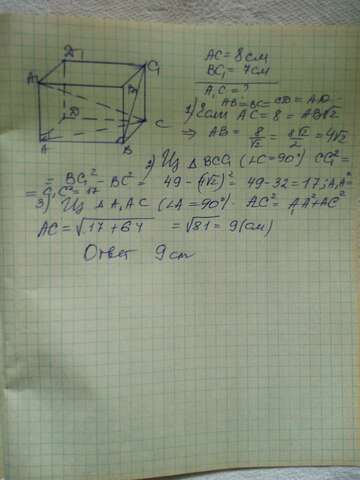 D₁ C₁ A₁ B₁ D C A B
AC = 8 см
BC₁ = 7 см
A₁C = ?
AB = BC = CD = AD
1) Если AC = 8 = AB√2
⇒ AB = 8/√2 = 8√2/2 = 4√2
2) Из Δ BCC₁ (∠C = 90°) CC₁² =
= BC₁² - BC² = 49 - (4√2)² = 49 - 32 = 17; A₁A² =
= C₁C² = 17
3) Из Δ A₁AC (∠A = 90°) A₁C² = A₁A² + AC²
AC = √17 + 64 = √81 = 9 (см)
Ответ 9 см